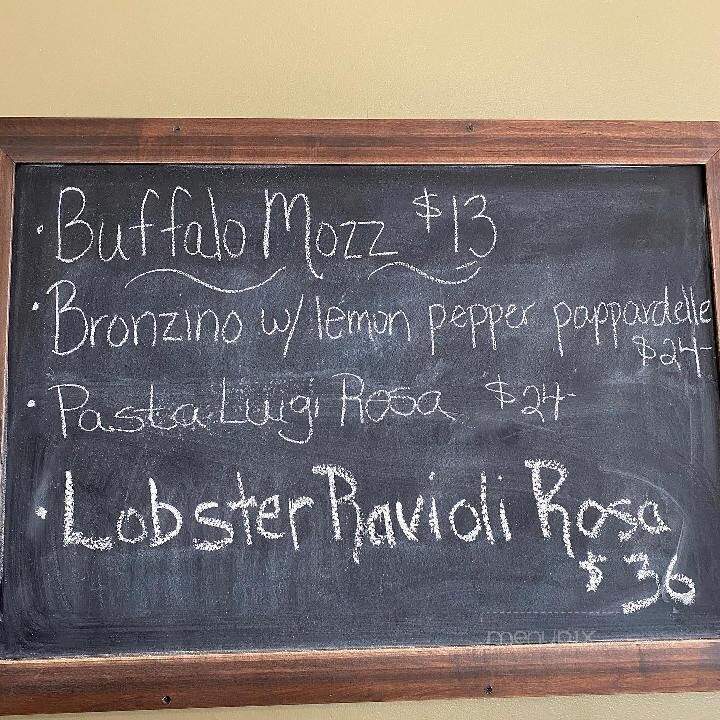 · Buffalo Mozz $13
· Bronzino w/ lemon pepper pappardelle
$24-
· Pasta Luigi Rosa $24-
· Lobster Ravioli Rosa
$36
menupix